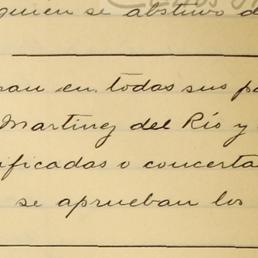 quien se abstuvo d
en todas sus pa
Martinez del Río y
ificadas o concerta
se aprueban los